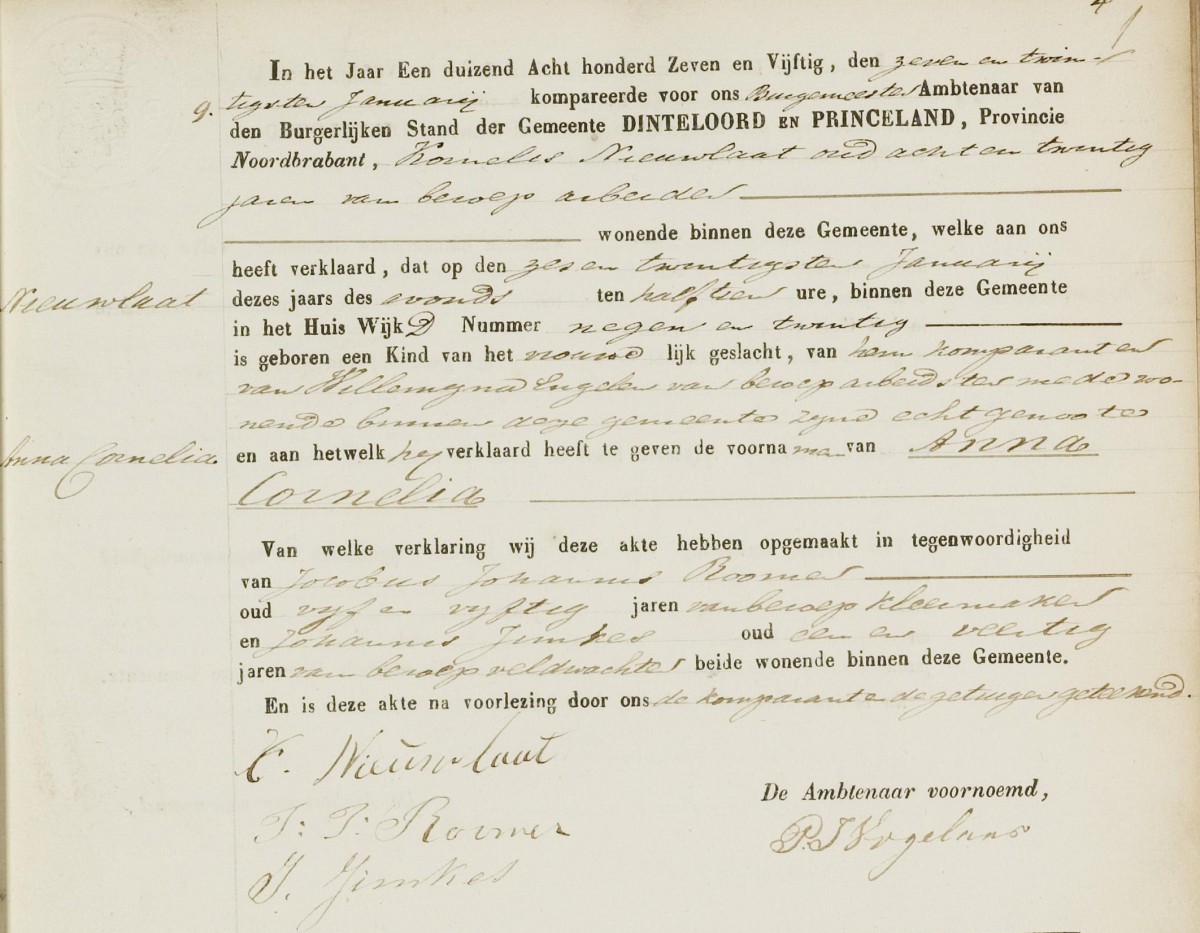 4
In het Jaar Een duizend Acht honderd Zeven en Vijftig, den zeven en twin-
9. tigsten Januarij kompareerde voor ons Burgemeester Ambtenaar van
den Burgerlijken Stand der Gemeente DINTELOORD EN PRINCELAND, Provincie
Noordbrabant, Kornelis Nieuwlaat oud acht en twintig
jaren van beroep arbeider
wonende binnen deze Gemeente, welke aan ons
heeft verklaard, dat op den zes en twintigsten Januarij
Nieuwlaat
dezes jaars des avonds ten half tien ure, binnen deze Gemeente
in het Huis Wijk D Nummer negen en twintig
is geboren een Kind van het vrouwe lijk geslacht, van hem komparant en
van Willemyna Engelen van beroep arbeidster mede wo-
nende binnen deze gemeente zynd echtgenoote
Anna Cornelia
en aan hetwelk hy verklaard heeft te geven de voorna men van Anna
Cornelia
Van welke verklaring wij deze akte hebben opgemaakt in tegenwoordigheid
van Jacobus Johannis Roomer
oud vyf en vyftig jaren van beroep kleermaker
en Johannis Jimkes oud een en veertig
jaren van beroep veldwachter beide wonende binnen deze Gemeente.
En is deze akte na voorlezing door ons de komparant en de getuigen geteekend.
K. Nieuwlaat
De Ambtenaar voornoemd,
J: J: Roomer
P. J Vogelaar
J. Jimkes